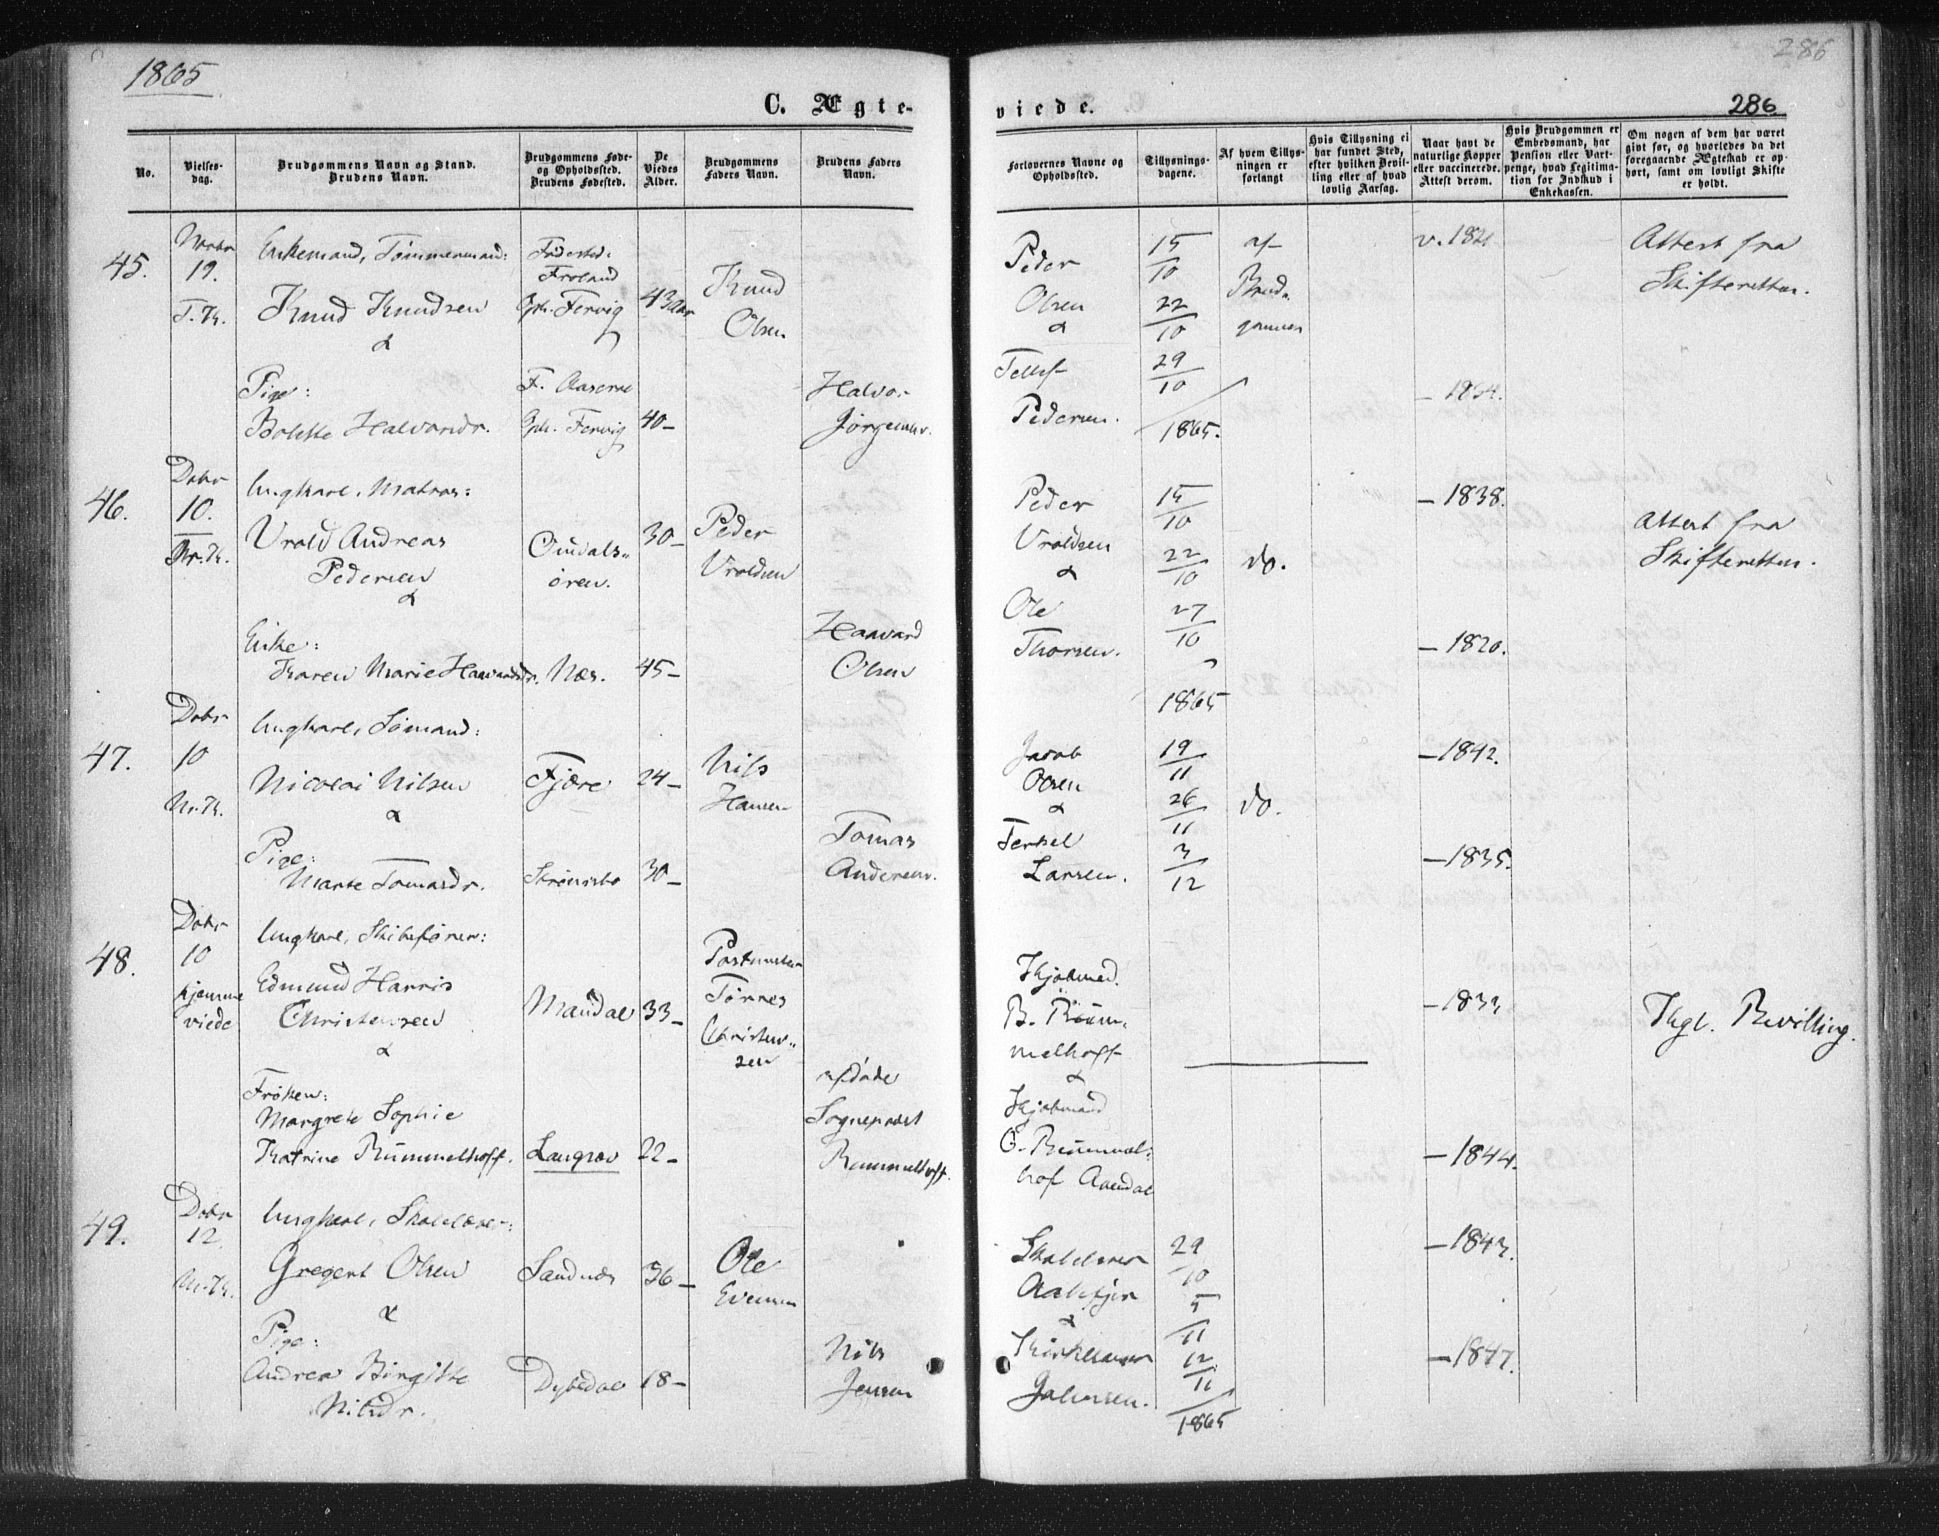 1865
286
C. Ægte-
viede.
286
No.
Vielses-
dag.
Brudgommens Navn og Stand.
Brudens Navn.
Brudgommens Føde-
og Opholdssted.
Brudens Fødested.
De
Viedes
Alder.
Brudgommens
Faders Navn.
Brudens Faders
Navn.
Forlovernes Navne og
Opholdssted.
Tillysnings-
dagene.
Af hvem Tillys-
ningen er
forlangt
Hvis Tillysning ei
har fundet Sted,
efter hvilken Bevil-
ling eller af hvad
lovlig Aarsag.
Naar havt de
naturlige Kopper
eller vaccinerede.
Attest derom.
Hvis Brudgommen er
Embedsmand, har
Pension eller Vart-
penge, hvad Legitima-
tion for Indskud i
Enkekassen.
Om nogen af dem har været
gift før, og hvorledes da det
foregaaende Ægteskab er op-
hørt, samt om lovligt Skifte
er holdt.
45.
19.
T.K.
Enkemand, Tømmermand:
Knud Knudsen
&
Pige:
Halvorsdr.
Fødested:
Froland
Fervig
Fervig
43 Aar
40 –
Knud
Olsen
Halvor
Jørgensen.
Peder
Olsen
&
Tellef
Pedersen.
15/10
22/10
29/10
1865.
af
Brud-
gommen
Attest fra
Skifteretten.
46.
Dcbr
10.
Ungkarl, Matros:
Vrold Andreas
Pedersen
&
Enke:
Karen Marie Haavardsdr.
Omdals-
øren.
Næs.
30 –
45 –
Peder
Vroldsen
Haavard
Olsen
Peder
Vroldsen
&
Ole
Thorsen.
15/10
22/10
27/10
1865
do.
– 1838.
– 1820.
Attest fra
Skifteretten.
47.
Dcbr
10
Ungkarl, Sømand:
Nicolai Nilsen
&
Pige:
Marte Tomasdr.
Fjære
24 –
30 –
Nils
Hansen
Tomas
Andersen.
Jacob
Olsen
&
Terkel
Larsen.
19/11
26/11
3/12
do.
– 1842.
– 1835.
48.
Dcbr
10
hjemme
viede
Ungkarl, Skibsfører:
Edmund Harris
Christensen
&
Frøken:
Margrete Sophie
Katrine Rummelhoff.
Mandal
Langsæv
33 –
22 –
Postmester
Tørres
Christen-
sen
afdøde
Sogneprest
Rummelhoff.
Kjøbmand
B. Rum-
melhoff
&
Kjøbmand
G. Rummel-
hof Arendal
– 1844.
Kgl. Bevilling.
49.
Dcbr
12.
Ungkarl, Skolelærer:
Gregert Olsen
&
Pige:
Andrea Birgitte
Nilsdr.
Sandnæs
Dybedal
36 –
18 –
Ole
Evensen
Nils
Jensen
Skolelærer
&
Kirkesanger
29/10
5/11
12/11
1865
– 1843.
– 1847.